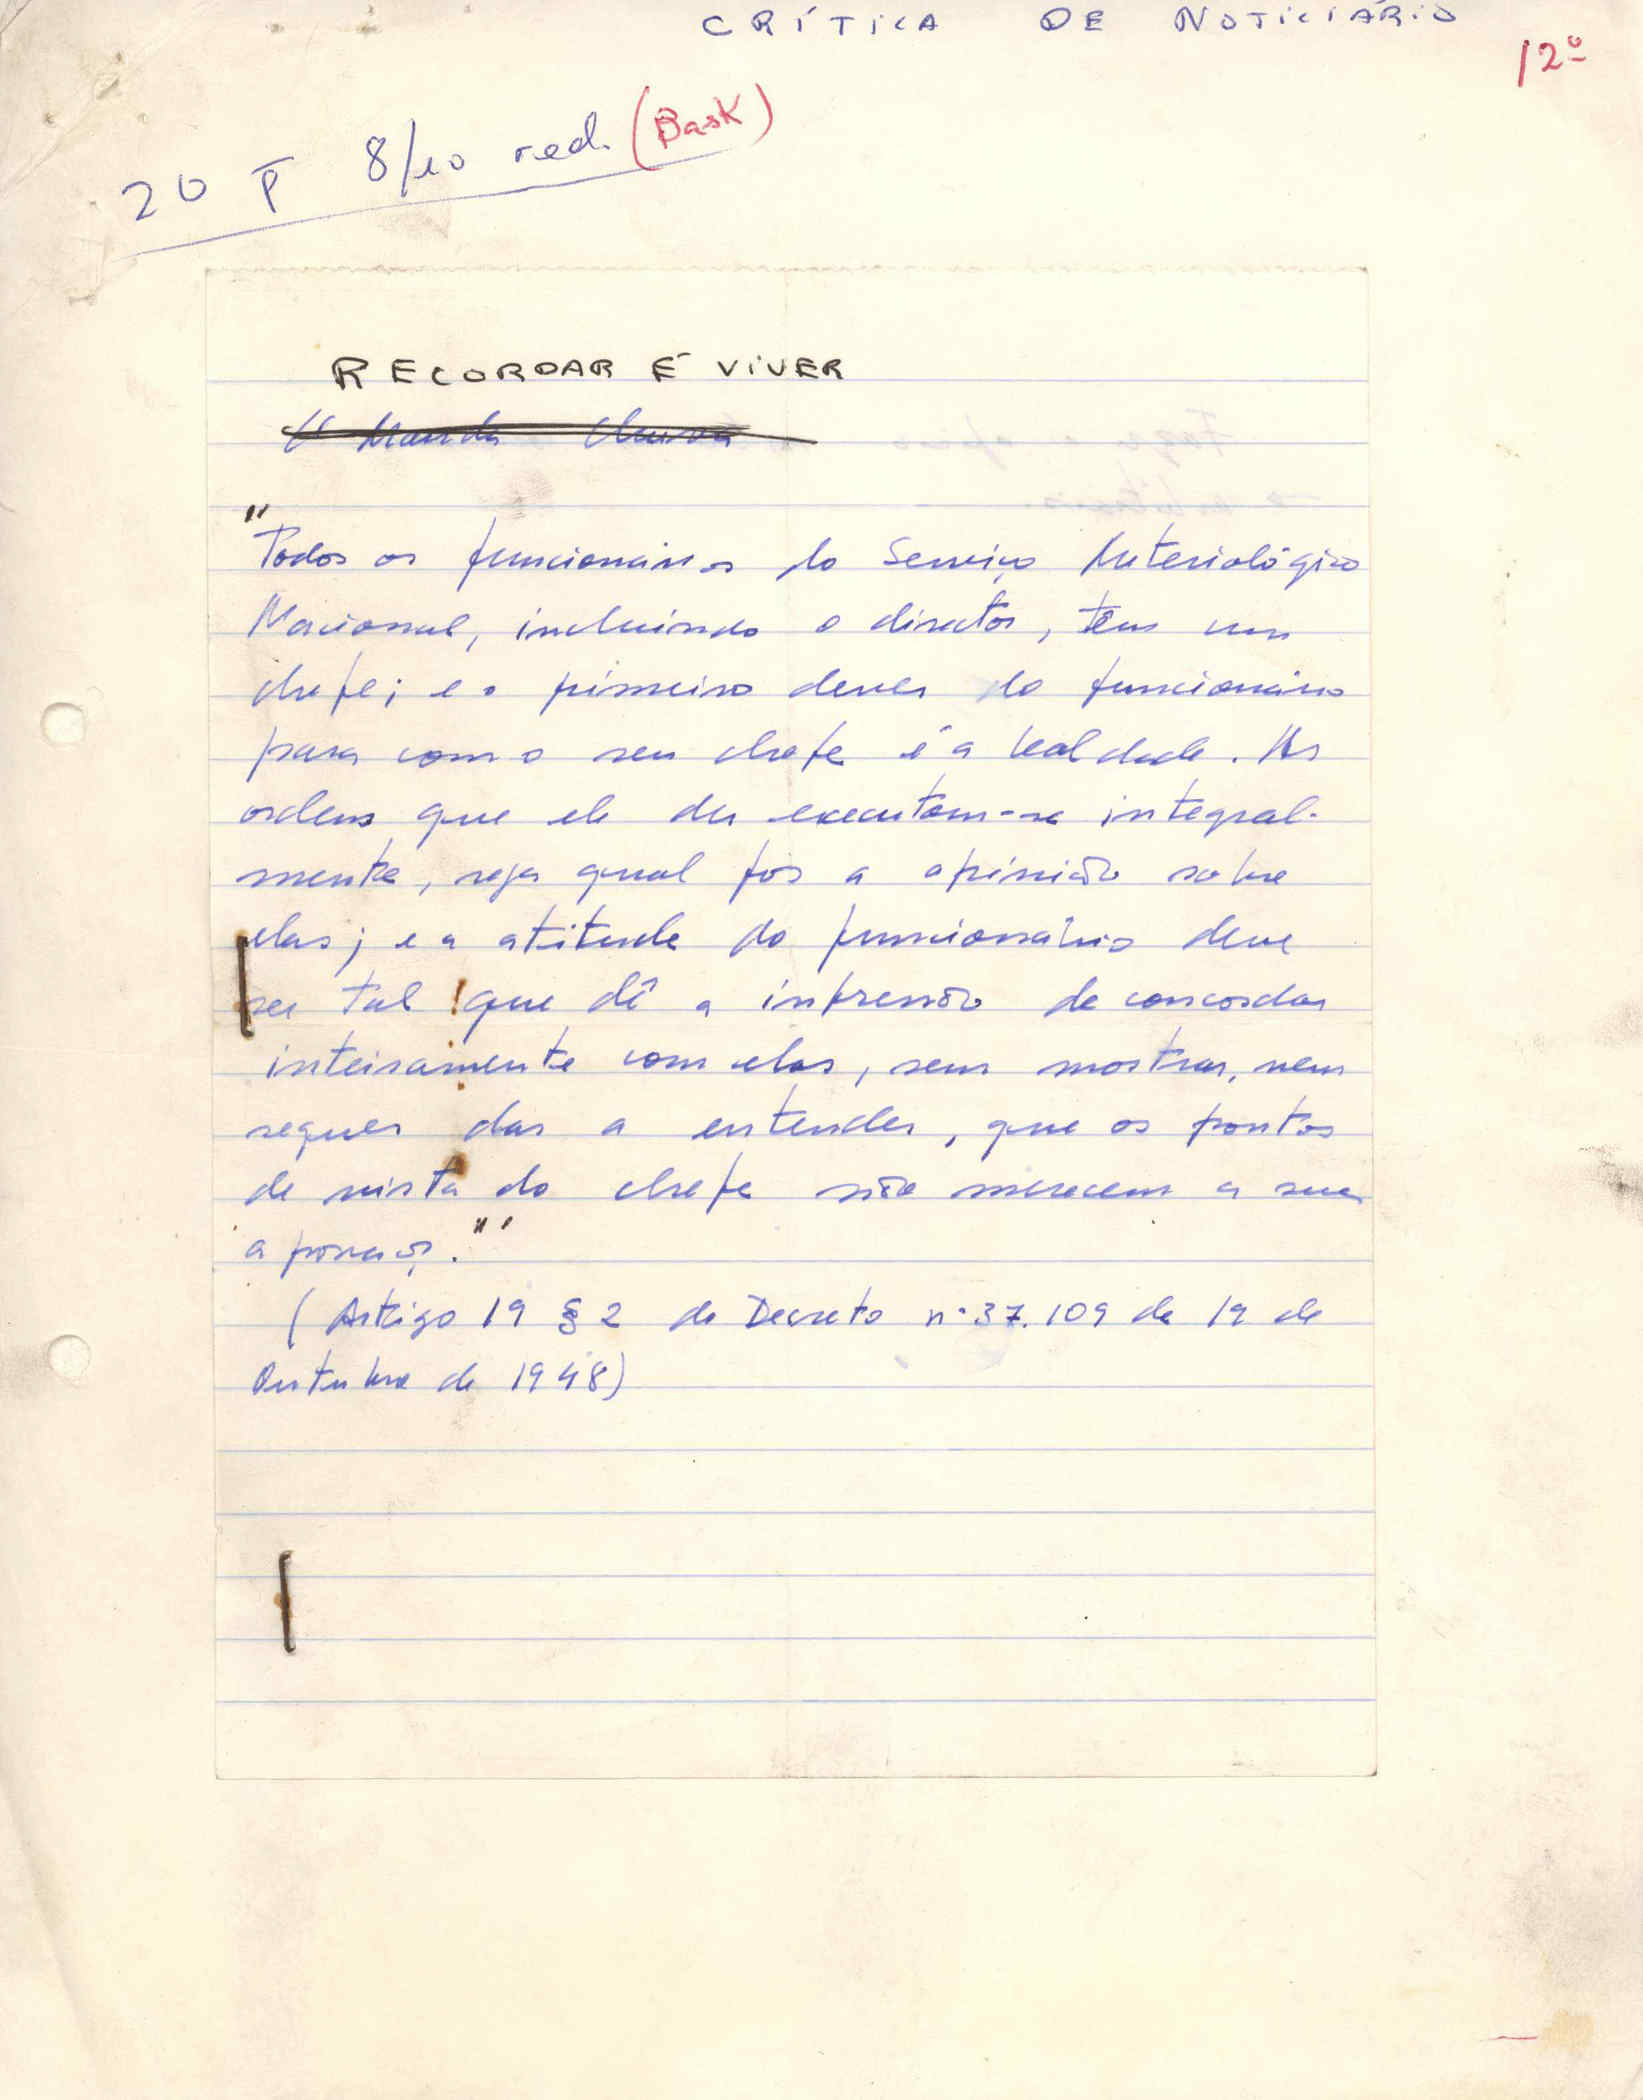 CRÍTICA DE NOTICIÁRIO
12º
20 P 8/10 red. (Bask)
RECORDAR É VIVER
O Manda Chuva
"Todos os funcionários do Serviço Meteriológico
Nacional, incluindo o director, têm um
chefe; e o primeiro dever do funcionário
para com o seu chefe é a lealdade. As
ordens que ele der executam-se integral-
mente, seja qual for a opinião sobre
elas; e a atitude do funcionário deve
ser tal que dê a impressão de concordar
inteiramente com elas, sem mostrar, nem
sequer dar a entender, que os pontos
de vista do chefe não merecem a sua
aprovação."
(Artigo 19 § 2 do Decreto nº 37.109 de 19 de
Outubro de 1948)